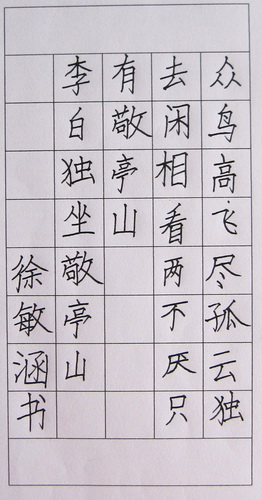 众鸟高飞尽孤云独
去闲相看两不厌只
有敬亭山
李白独坐敬亭山
徐敏涵书